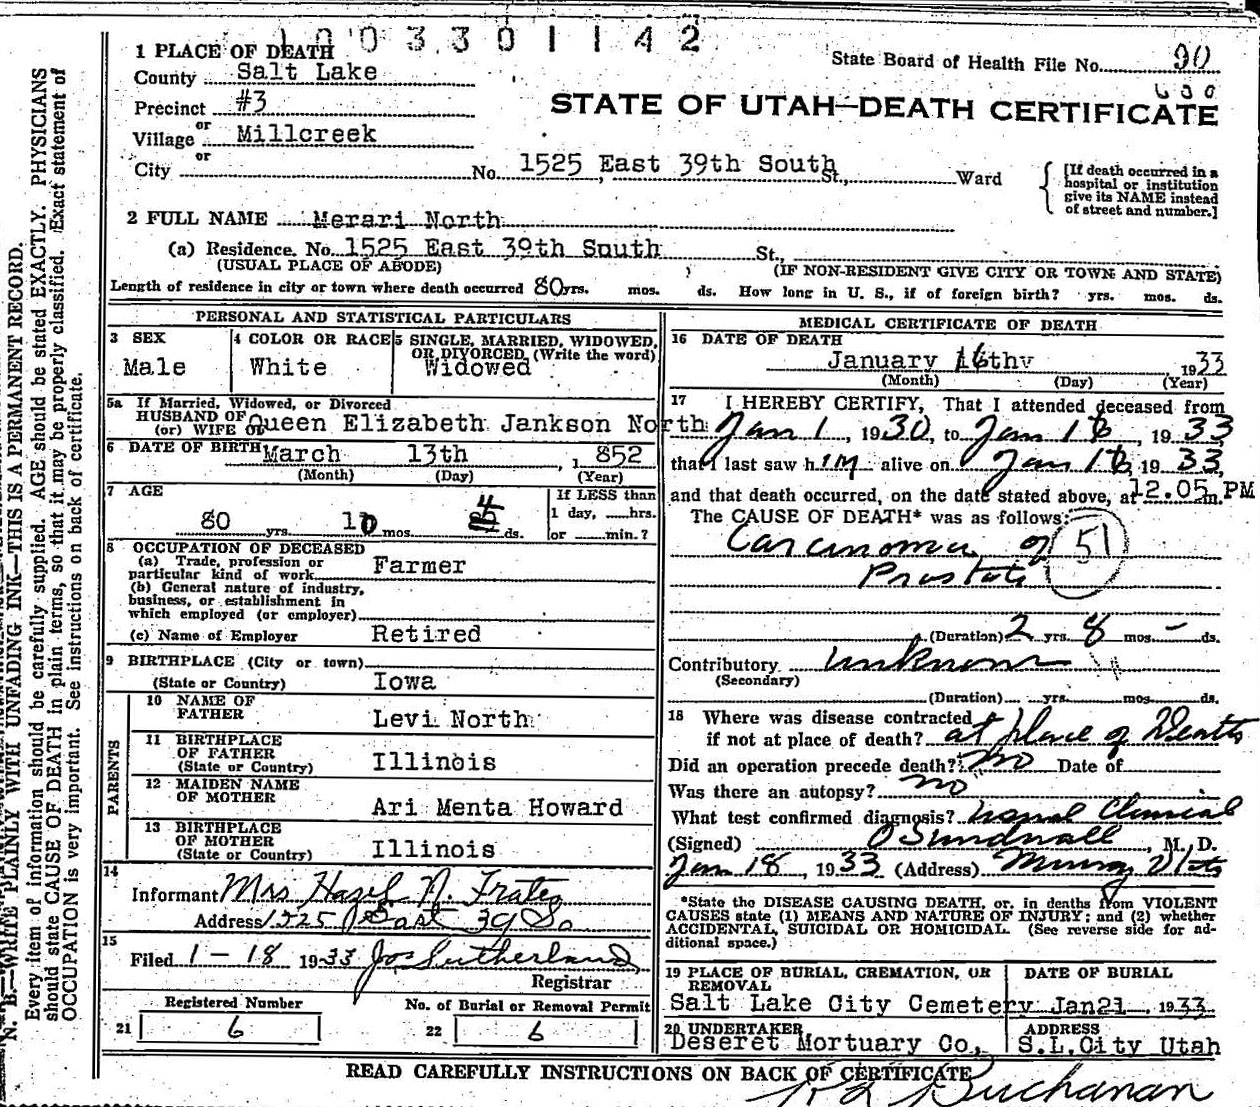 1003301142
State Board of Health File No. 90
STATE OF UTAH—DEATH CERTIFICATE
1 PLACE OF DEATH
County Salt Lake
Precinct #3
or
Village Millcreek
or
City No. 1525 East 39th South St., Ward
[If death occurred in a hospital or institution give its NAME instead of street and number.]
2 FULL NAME Merari North
(a) Residence. No. 1525 East 39th South St.,
(USUAL PLACE OF ABODE) (IF NON-RESIDENT GIVE CITY OR TOWN AND STATE)
Length of residence in city or town where death occurred 80 yrs. mos. ds. How long in U. S., if of foreign birth? yrs. mos. ds.
PERSONAL AND STATISTICAL PARTICULARS
3 SEX
Male
4 COLOR OR RACE
White
5 SINGLE, MARRIED, WIDOWED,
OR DIVORCED (Write the word)
Widowed
5a If Married, Widowed, or Divorced
HUSBAND OF Queen Elizabeth Jankson North
(or) WIFE OF
6 DATE OF BIRTH March 13th , 1852
(Month) (Day) (Year)
7 AGE
80 yrs. 10 mos. 4 ds.
If LESS than
1 day, hrs.
or min.?
8 OCCUPATION OF DECEASED
(a) Trade, profession or
particular kind of work Farmer
(b) General nature of industry,
business, or establishment in
which employed (or employer)
(c) Name of Employer Retired
9 BIRTHPLACE (City or town)
(State or Country) Iowa
PARENTS
10 NAME OF
FATHER Levi North
11 BIRTHPLACE
OF FATHER
(State or Country) Illinois
12 MAIDEN NAME
OF MOTHER Ari Menta Howard
13 BIRTHPLACE
OF MOTHER
(State or Country) Illinois
14
Informant Mrs Hazel N. Frates
Address 1525 East 39 So
15
Filed 1-18 1933 Jos Sutherland
Registrar
Registered Number
21 6
No. of Burial or Removal Permit
22 6
MEDICAL CERTIFICATE OF DEATH
16 DATE OF DEATH
January 16th 1933
(Month) (Day) (Year)
17 I HEREBY CERTIFY, That I attended deceased from
Jan 1, 1930, to Jan 16, 1933
that I last saw him alive on Jan 16, 1933,
and that death occurred, on the date stated above, at 12.05 m. PM
The CAUSE OF DEATH* was as follows:
Carcinoma of 51
Prostate
(Duration) 2 yrs. 8 mos. - ds.
Contributory unknown
(Secondary)
(Duration) yrs. mos. ds.
18 Where was disease contracted
if not at place of death? at place of Death
Did an operation precede death? no Date of
Was there an autopsy? no
What test confirmed diagnosis? usual Clinical
(Signed) O Sundwall, M. D.
Jan 18, 1933 (Address) Murray Utah
*State the DISEASE CAUSING DEATH, or, in deaths from VIOLENT
CAUSES state (1) MEANS AND NATURE OF INJURY; and (2) whether
ACCIDENTAL, SUICIDAL OR HOMICIDAL. (See reverse side for ad-
ditional space.)
19 PLACE OF BURIAL, CREMATION, OR
REMOVAL
Salt Lake City Cemetery
DATE OF BURIAL
Jan21 1933
20 UNDERTAKER
Deseret Mortuary Co.,
ADDRESS
S.L.City Utah
READ CAREFULLY INSTRUCTIONS ON BACK OF CERTIFICATE
Buchanan
N. B.—WRITE PLAINLY WITH UNFADING INK—THIS IS A PERMANENT RECORD.
Every item of information should be carefully supplied. AGE should be stated EXACTLY. PHYSICIANS
should state CAUSE OF DEATH in plain terms, so that it may be properly classified. Exact statement of
OCCUPATION is very important. See instructions on back of certificate.